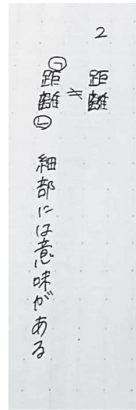 2
距離
≠
「距離」 細部には意味がある